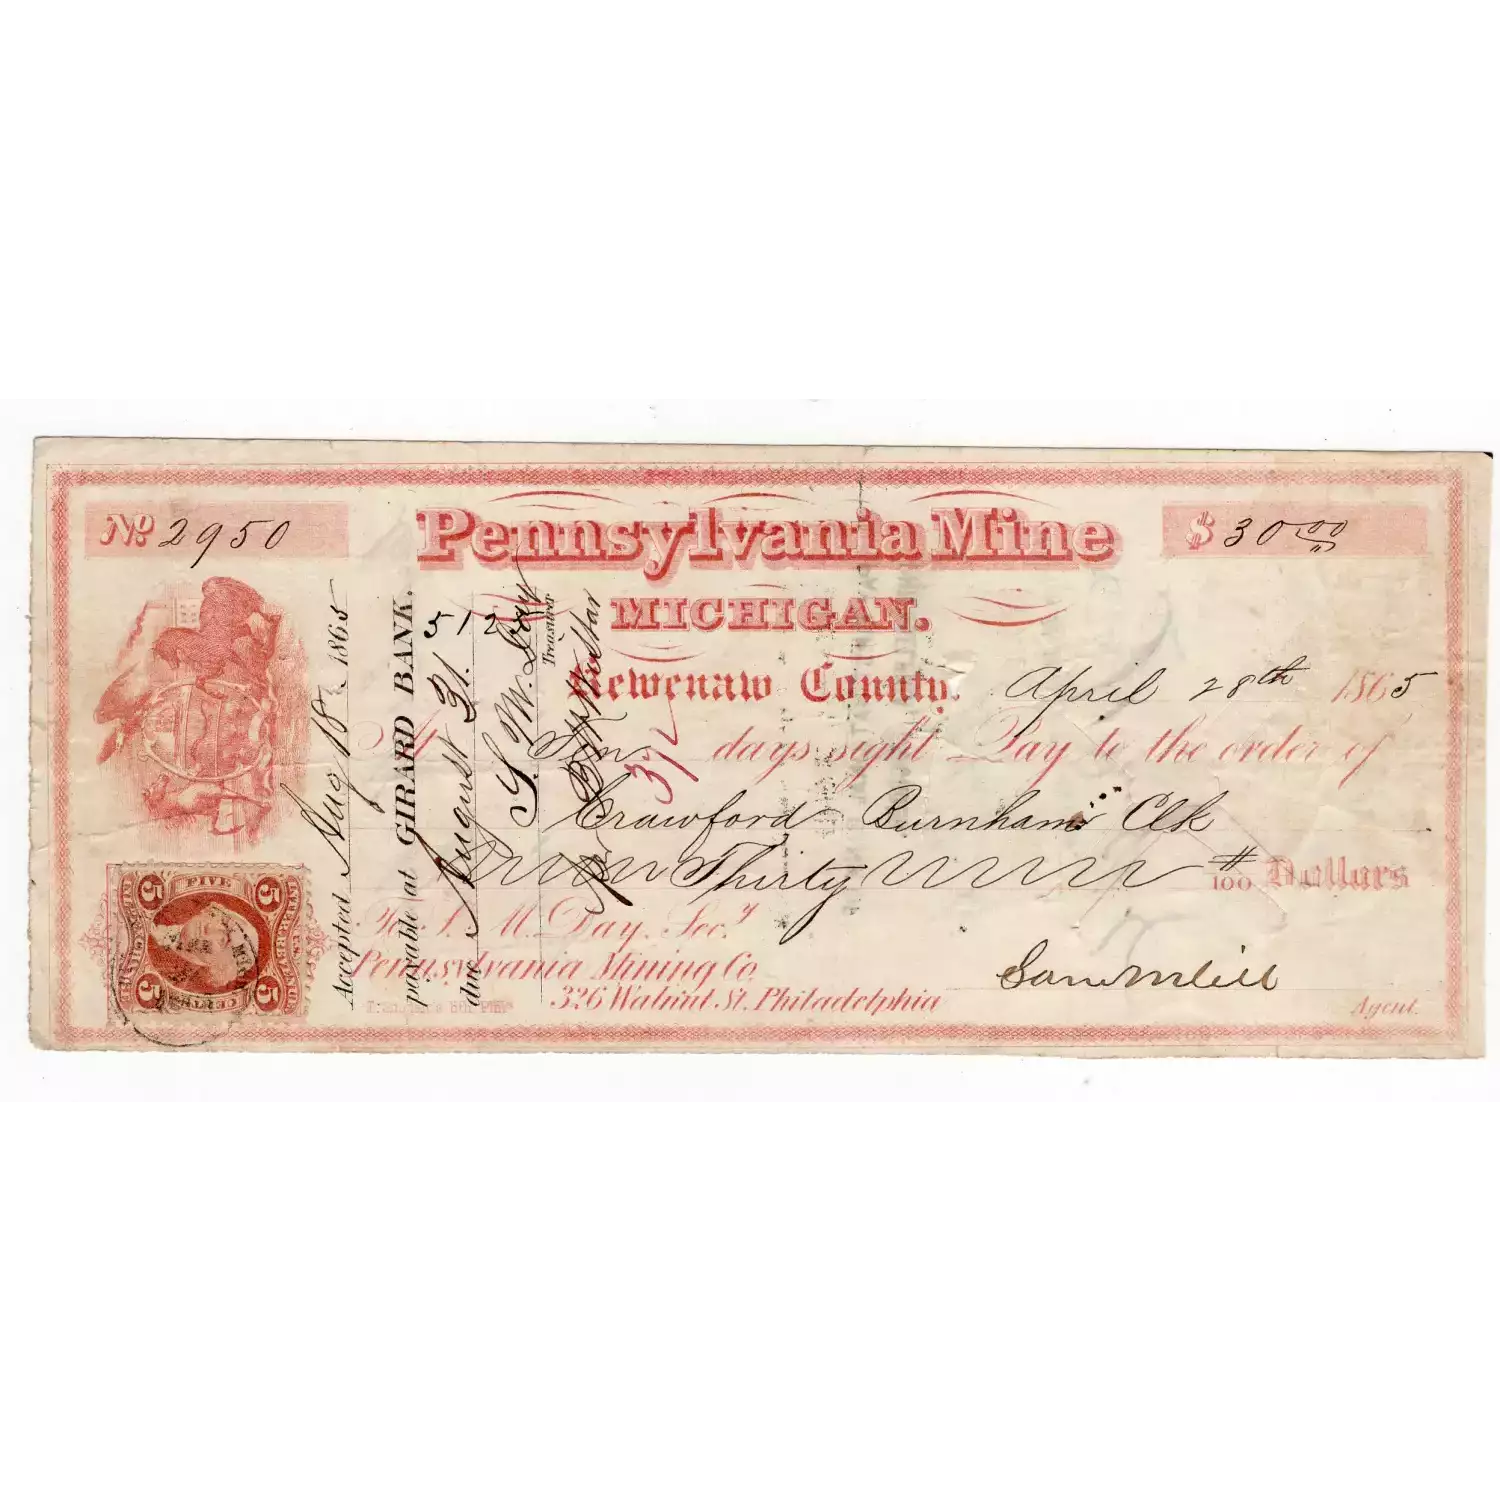 No 2950
Pennsylvania Mine
$ 30 00
MICHIGAN.
Kewenaw County. April 28th 1865
At Ten days sight Pay to the order of
Crawford Burnham Clk
Thirty 100 Dollars
To S. M. Day. Secy
Pennsylvania Mining Co
326 Walnut St. Philadelphia
Agent.
Accepted Aug 18 1865
payable at GIRARD BANK.
due August 31. 512
S. M. Day
Treasurer
Per
FIVE
5 5
U.S. INTER. REV.
CENTS
5 5